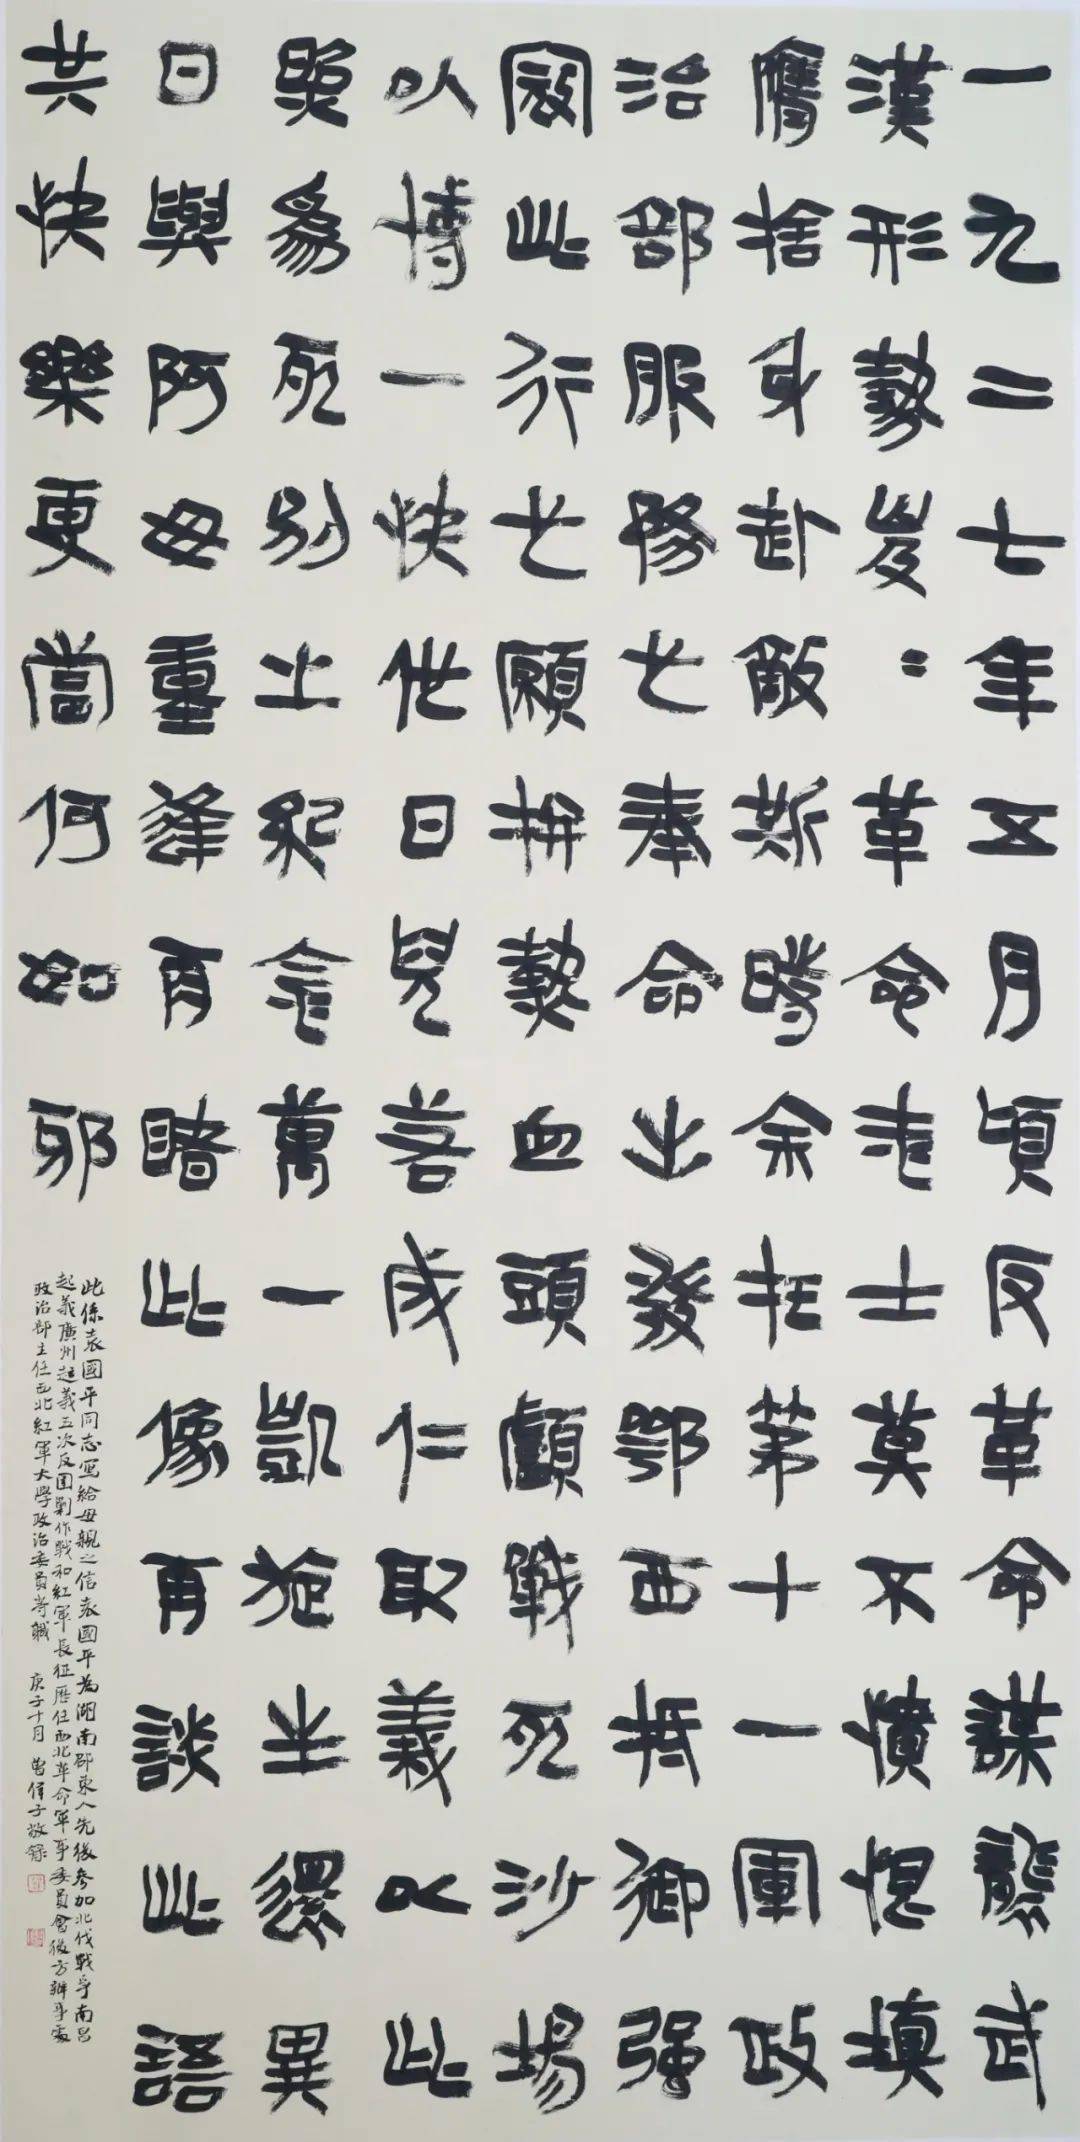 一九二七年五月頃反革命謀襲武
漢形勢岌〻革命志士莫不憤恨填
膺捨身赴敵斯時余在第十一軍政
治部服務也奉命出發鄂西抵御強
寇此行也願拚熱血頭顱戰死沙場
以博一快他日兒若成仁取義以此
照為死別之紀念萬一凱旋生還異
日與阿母重逢再睹此像再談此語
共快樂更當何如邪
此係袁國平同志寫給母親之信袁國平為湖南邵東人先後參加北伐戰爭南昌
起義廣州起義五次反圍剿作戰和紅軍長征歷任西北革命軍事委員會後方辦事處
政治部主任西北紅軍大學政治委員等職 庚子十月 曾偉子敬錄